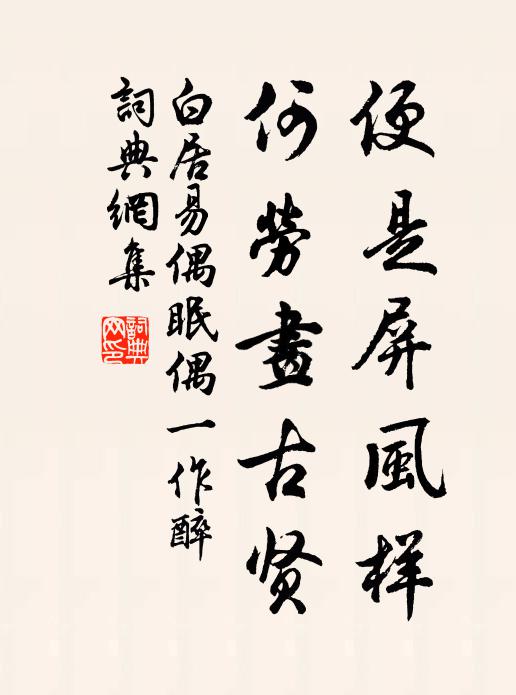 便是屏風样
何勞畫古贤
白居易偶眠偶一作醉
詞典網集
詞典網印